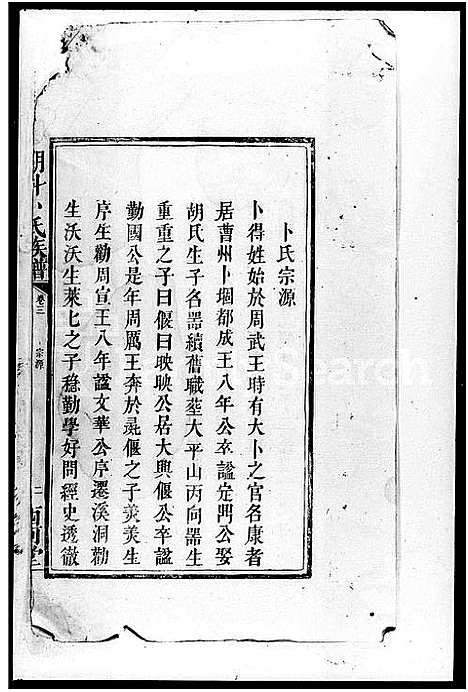 卜氏宗源
卜得姓始於周武王時有大卜之官名康者
居曹州卜堌都成王八年公卒謚定門公娶
胡氏生子名噐續舊職塟大平山丙向噐生
重重之子曰偃曰映映公居大興偃公卒謚
勤國公是年周厲王奔於彘偃之子羙羙生
序生勸周宣王八年謚文華公序遷溪洞勸
生沃沃生萊匕之子稳勤學好問經史透徹
卜氏族譜
卷三
宗源